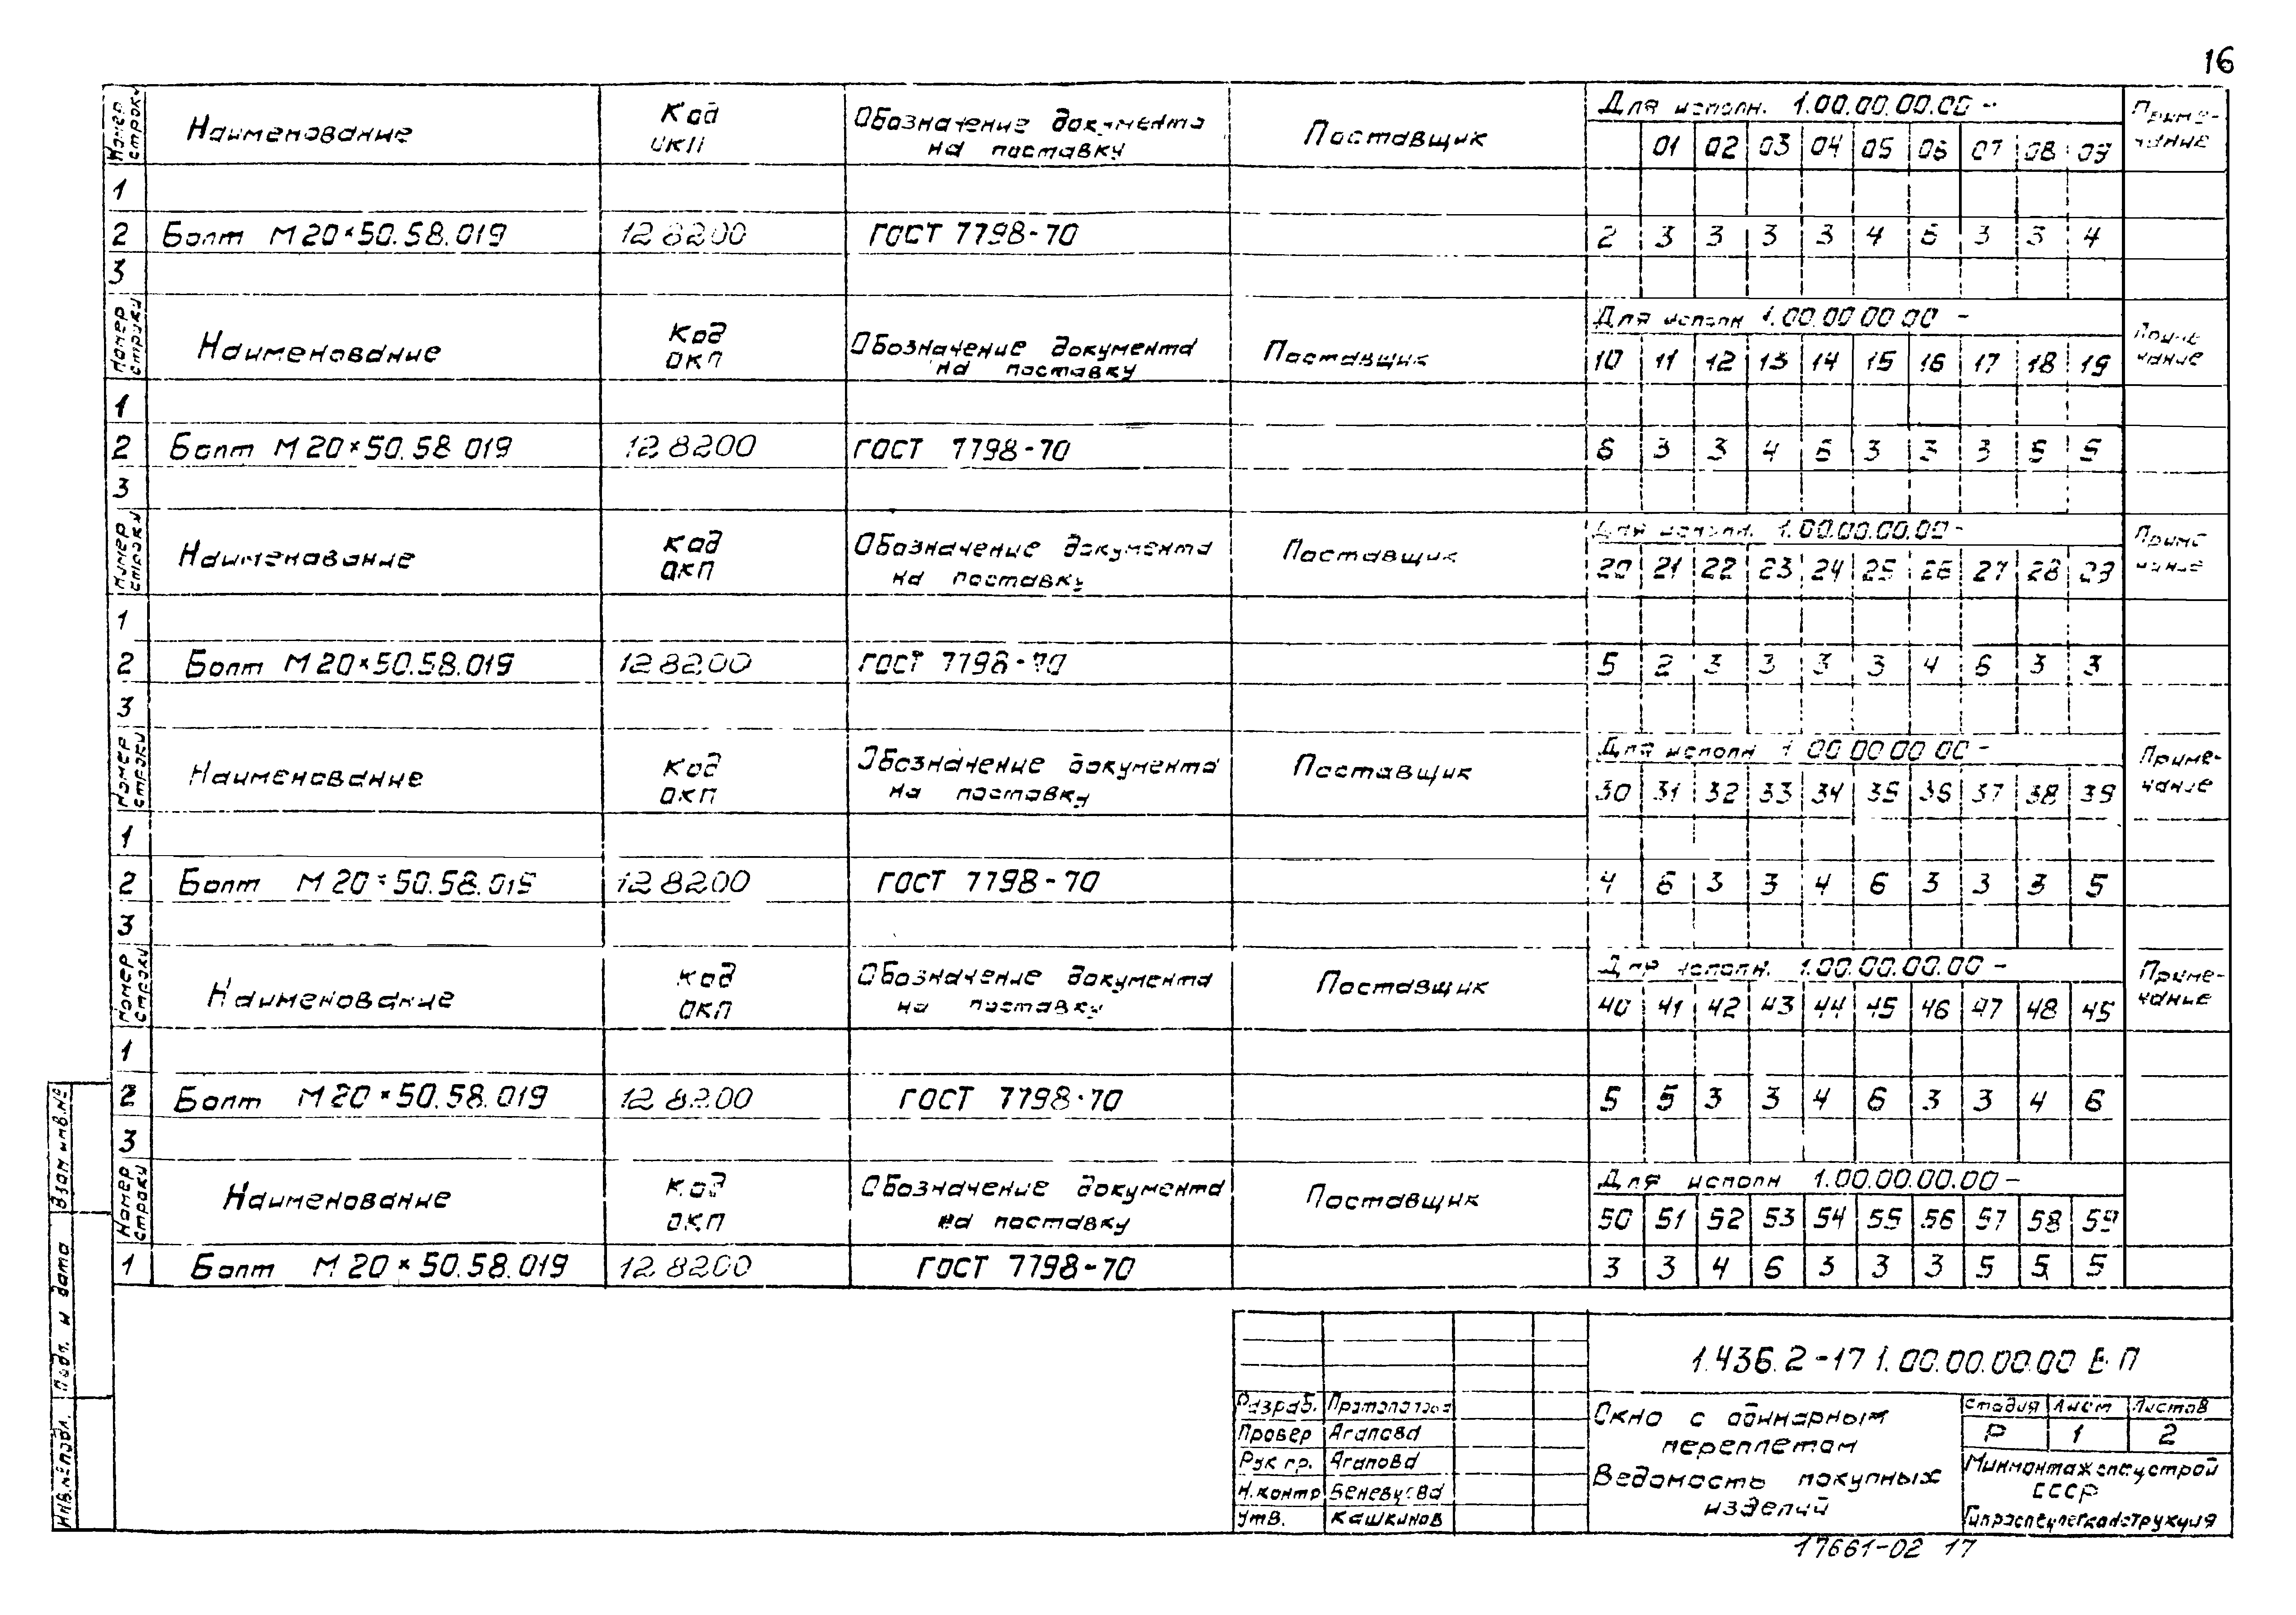 16
Номер строки Наименование Код ОКП Обозначение документа на поставку Поставщик Для исполн. 1.00.00.00.00 - Приме-чание
01 02 03 04 05 06 07 08 09
1
2 Болт М20×50.58.019 128200 ГОСТ 7798-70 2 3 3 3 3 4 6 3 3 4
3
Номер строки Наименование Код ОКП Обозначение документа на поставку Поставщик Для исполн 1.00.00 00 00 - Приме чание
10 11 12 13 14 15 16 17 18 19
1
2 Болт М20×50.58 019 128200 ГОСТ 7798-70 6 3 3 4 6 3 3 3 5 5
3
Номер строки Наименование Код ОКП Обозначение документа на поставку Поставщик Для исполн. 1.00.00.00.00- Приме чание
20 21 22 23 24 25 26 27 28 29
1
2 Болт М20×50.58.019 128200 ГОСТ 7798-70 5 2 3 3 3 3 4 6 3 3
3
Номер строки Наименование Код ОКП Обозначение документа на поставку Поставщик Для исполн 1 00 00 00 00 - Приме-чание
30 31 32 33 34 35 36 37 38 39
1
2 Болт М20×50.58.019 128200 ГОСТ 7798-70 4 6 3 3 4 6 3 3 3 5
3
Номер строки Наименование Код ОКП Обозначение документа на поставку Поставщик Для исполн. 1.00.00.00.00 - Приме-чание
40 41 42 43 44 45 46 47 48 49
1
2 Болт М20×50.58.019 128200 ГОСТ 7798-70 5 5 3 3 4 6 3 3 4 6
3
Номер строки Наименование Код ОКП Обозначение документа на поставку Поставщик Для исполн 1.00.00.00.00 -
50 51 52 53 54 55 56 57 58 59
1 Болт М20×50.58.019 128200 ГОСТ 7798-70 3 3 4 6 3 3 3 5 5 5
Взам инв.№
Подп. и дата
Инв.№ подл.
1.436.2-17 1.00.00.00.00 ВП
Разраб.
Провер Агапова
Рук гр. Агапова
Н.контр
Утв. Кашкинов
Окно с одинарным
переплетом
Ведомость покупных
изделий
Стадия Лист Листов
Р 1 2
Минмонтажспецстрой
СССР
Гипроспецлегконструкция
17661-02 17